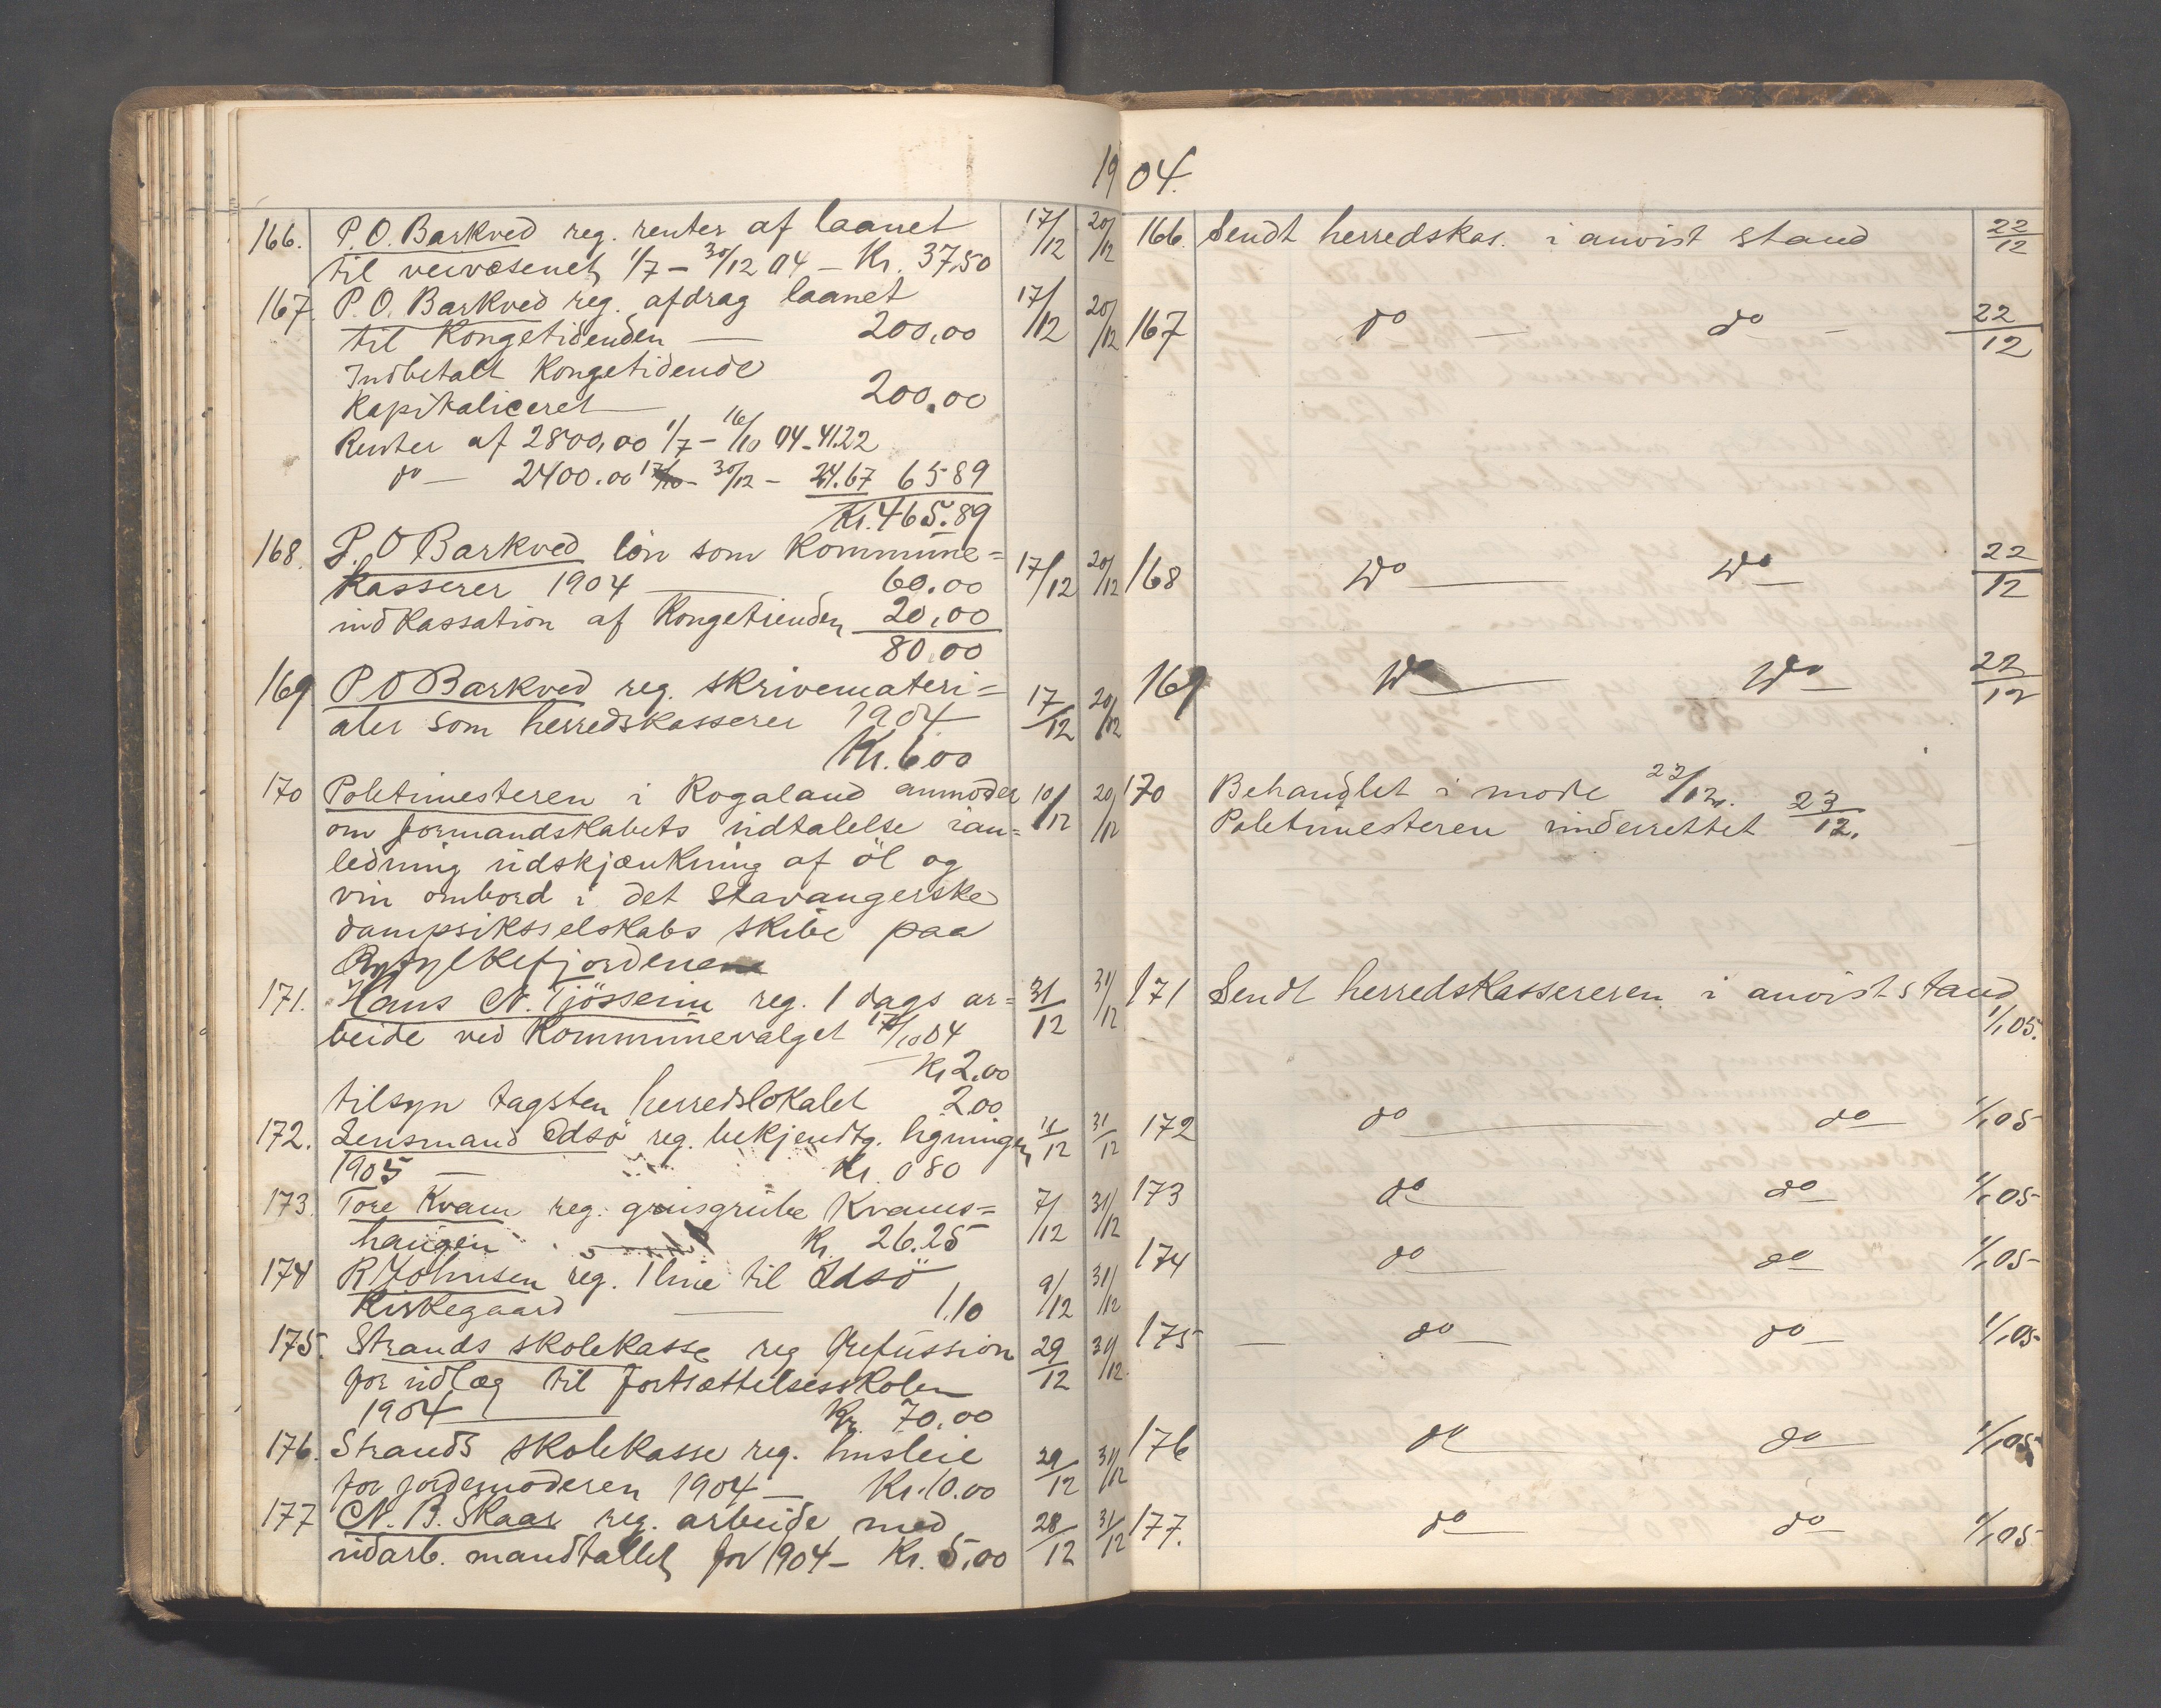 1904.
166. P. O. Barkved reg. renter af laanet 17/12 20/12
til veivæsenet 1/7 – 30/12 04 – Kr. 37,50
167. P. O. Barkved reg. afdrag laanet 17/12 20/12
til Kongetidenden — 200,00
Indbetalt Kongetidende
Kapitaliceret — 200,00
Renter af 2800,00 1/7 – 16/10 04 – 41.22
do — 2400.00 17/10 – 30/12 – 24.67 65 89
Kr. 465.89
168. P. O Barkved lön som Kommune= 17/12 20/12
kasserer 1904 — 60.00
indkassation af Kongetienden 20,00
80.00
169 P O Barkved reg. skrivemateri= 17/12 20/12
aler som herredskasserer 1904
Kr. 6.00
170 Politimesteren i Rogaland anmoder 10/12 20/12
om formandskabets udtalelse ian=
ledning udskjænkning af öl og
vin ombord i det Stavangerske
dampsiksselskabs skibe paa
Ryfylkefjordene
171. Hans N. Tjösseim reg. 1 dags ar= 31/12 31/12
beide ved Kommunevalget 17/10 04
Kr 2.00
tilsyn tagsten herredslokalet 2.00
172. Lensmand Idsö reg. bekjendtg. ligningen 11/12 31/12
1905 — Kr. 0 80
173. Tore Kvam reg. grusgrube Kvams= 7/12 31/12
haugen Kr. 26.25
174 R Johnsen reg. 1 line til Idsö 9/12 31/12
Kirkegaard — 1.10
175. Strands skolekasse reg Refussion 29/12 31/12
for udlæg til fortsættelsesskolen
1904 — Kr. 70.00
176. Strands skolekasse reg. husleie 29/12 31/12
for jordemoderen 1904 — Kr. 10.00
177 N. B. Skaar reg. arbeide med 28/12 31/12
udarb. mandtallet for 1904 – Kr. 5.00
166. Sendt herredskas. i anvist stand 22/12
167 do — do — 22/12
168 do — do 22/12
169 do — do 22/12
170 Behandlet i mode 22/12.
Politimesteren underrettet 23/12.
171 Sendt herredskassereren i anvist stand
1/1 05.
172 do — do 1/1 05
173 do — do 1/1 05
174 do — do 1/1 05
175 — do — do 1/1 05
176 do — do 1/1 05
177. do — do 1/1 05